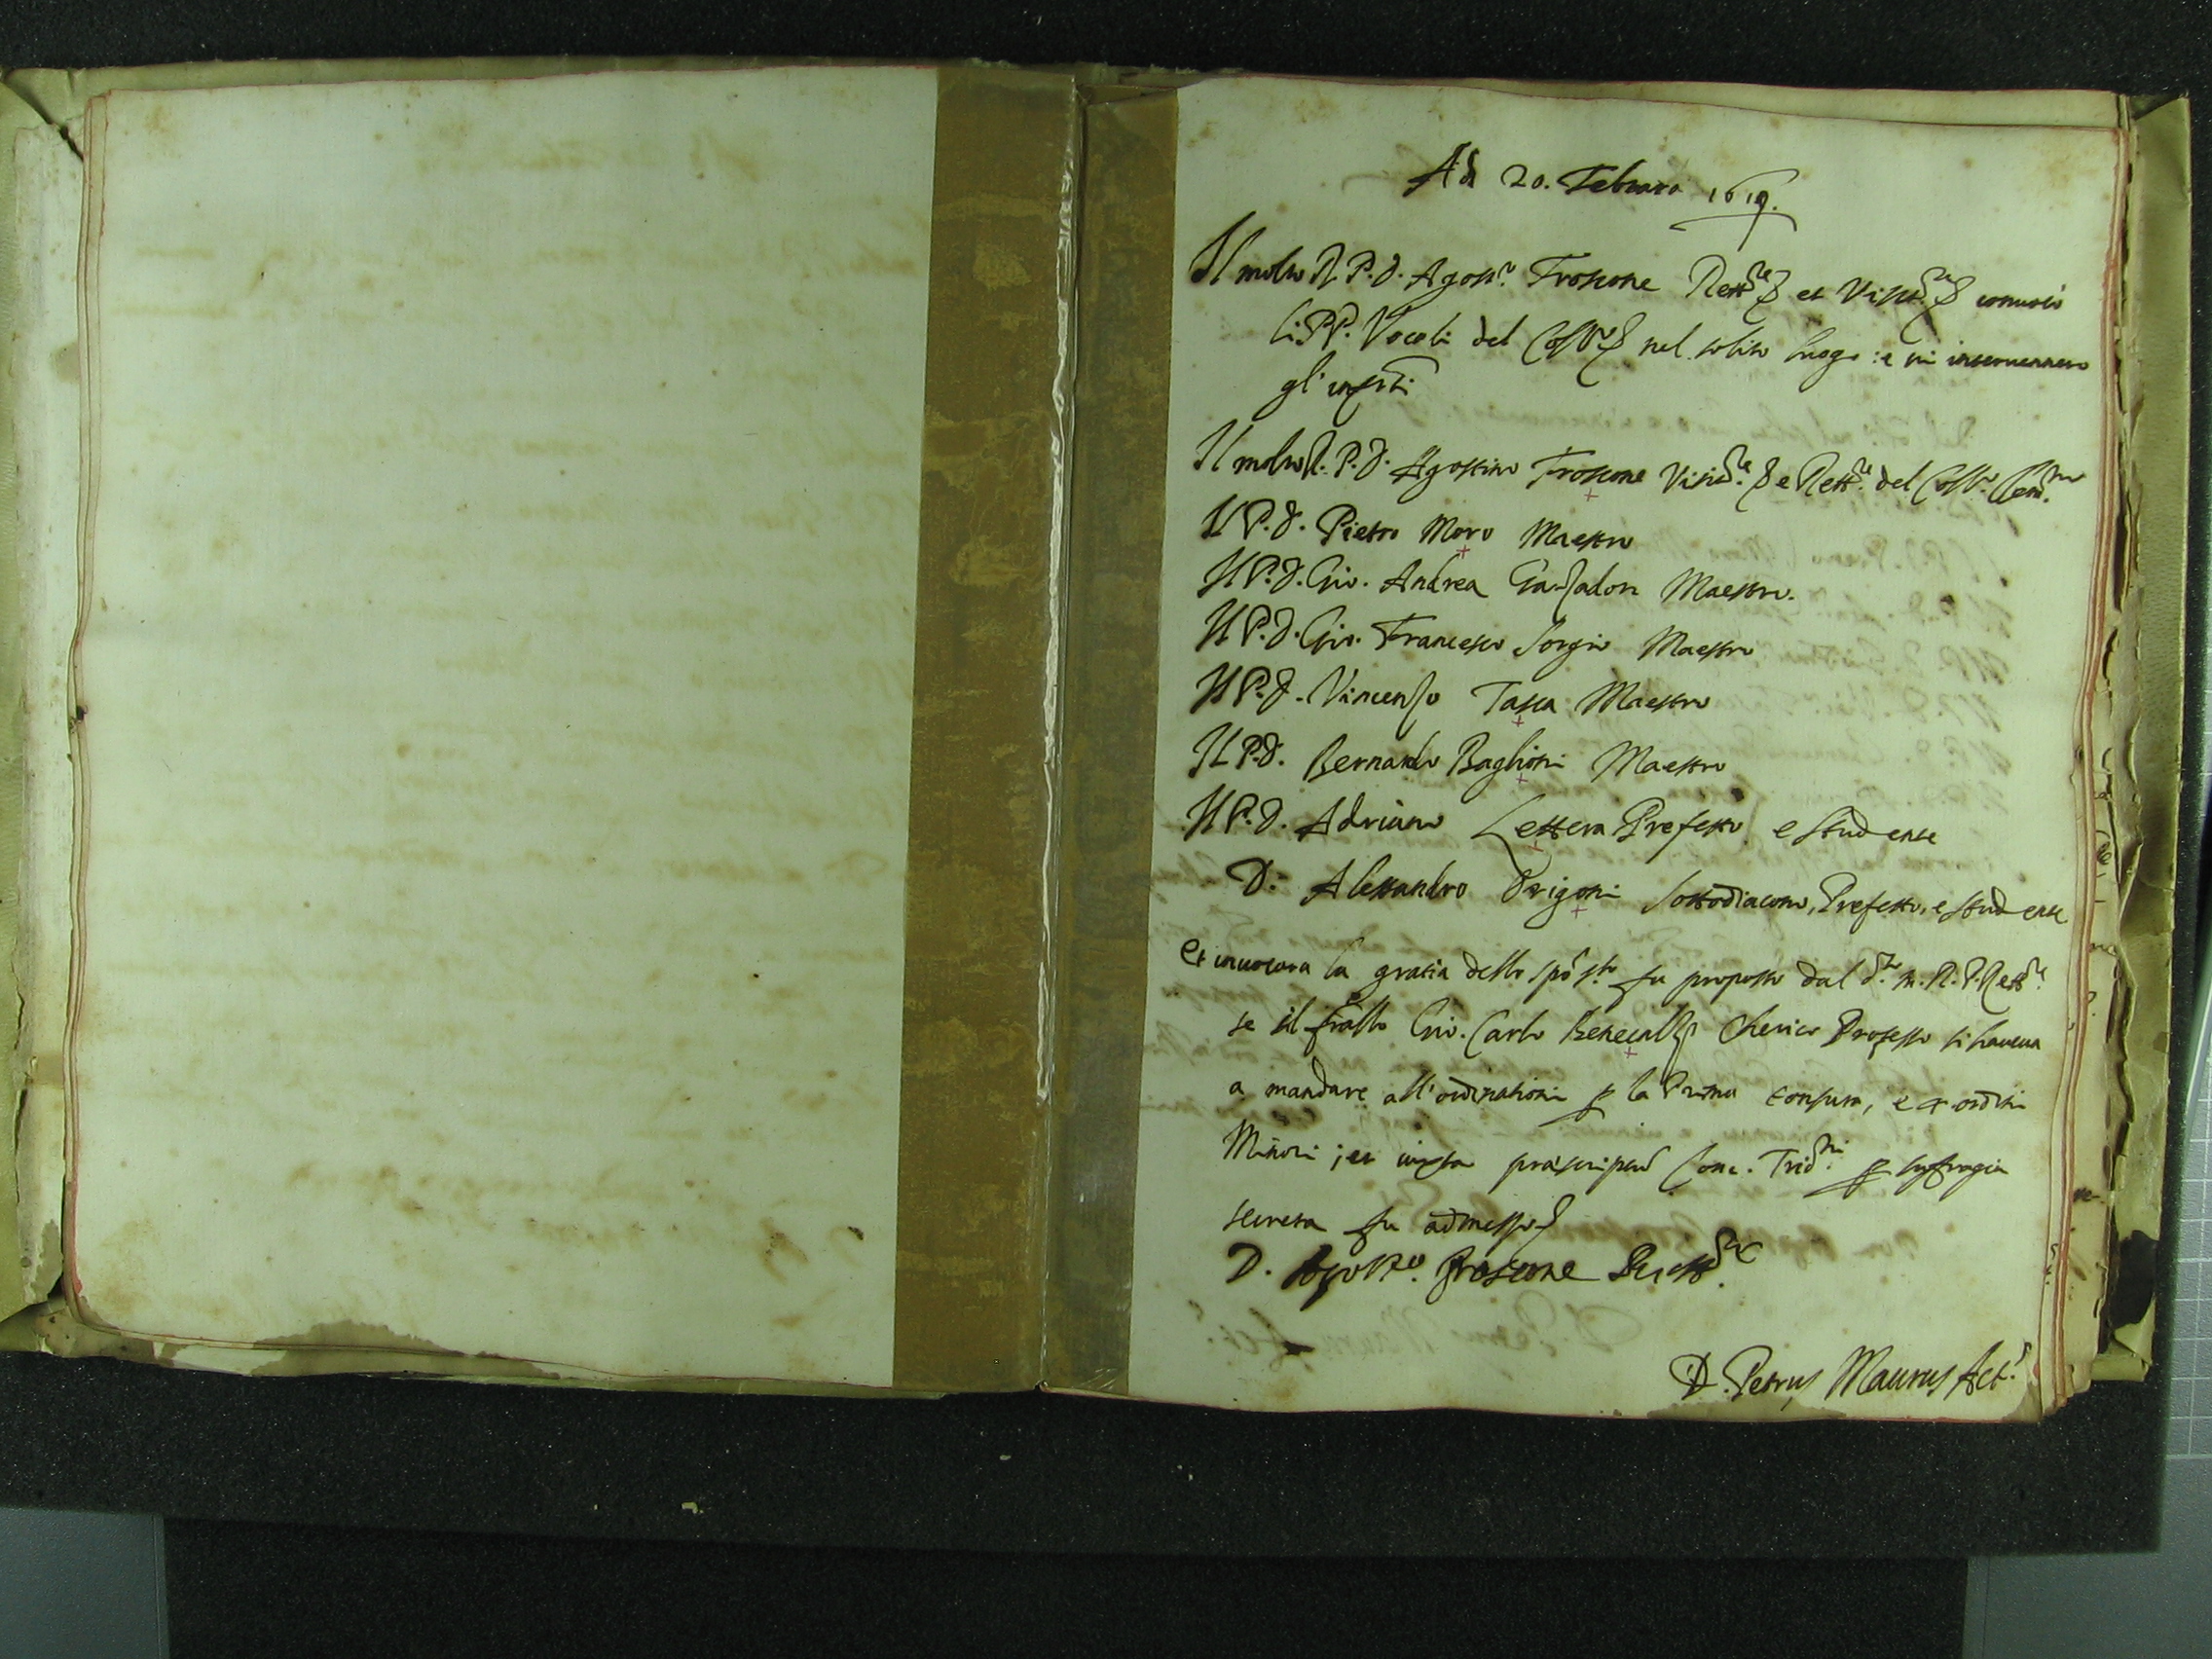 Adi 20. Febraro 1619.
Il molto R. P. D. Agost.º Froscone Rett.re et Visit.re conuocò
li PP. Vocali del Coll.º nel solito luogo: e ui interuennero
gl' infr.ti
Il molto R. P. D. Agostino Froscone Visit.re e Rett.re del Coll.º Clem.no
Il P. D. Pietro Moro Maestro
Il P. D. Gio. Andrea Maestro.
Il P. D. Gio. Francesco Sorgio Maestro
Il P. D. Vincenzo Tasca Maestro
Il P. D. Bernardo Baglioni Maestro
Il P. D. Adriano Lettera Prefetto e studente
D. Alessandro Origoni sottodiacono, Prefetto, e studente
Et inuocata la gratia dello spó s.to fu proposto dal d.to m. R. P. Rett.re
se il frallo Gio. Carlo Cherico Professo si haueua
a mandare all' ordinationi p la Prima tonsura, e 4 ordini
Minori; et iuxta præscriptũ Conc. Trid.ni p suffragia
secreta fu admesso
D. Agost.º Froscone Rett.re
D. Petrus Maurus Act.s